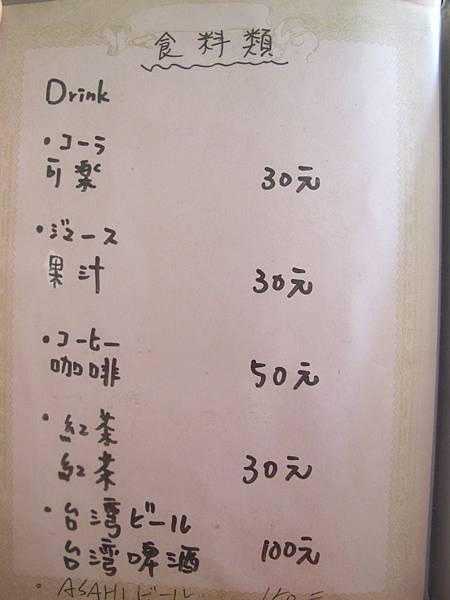 食料類
Drink
・コーラ
可楽 30元
・ジュース
果汁 30元
・コーヒー
咖啡 50元
・紅茶
紅茶 30元
・台湾ビール
台湾啤酒 100元
・ASAHIビール